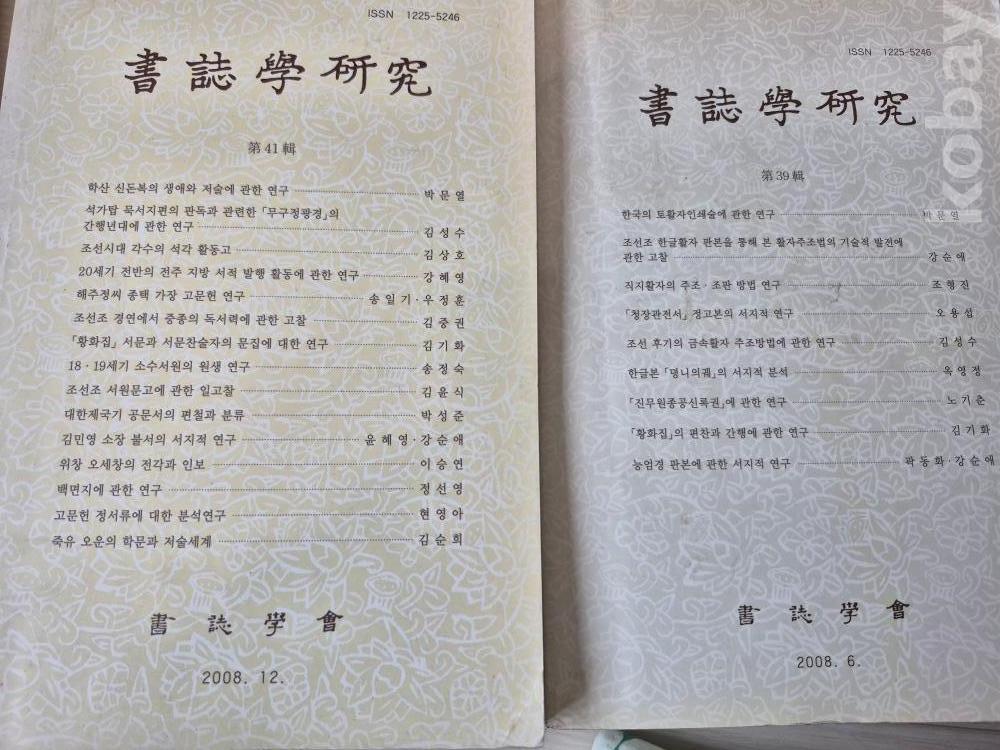 ISSN 1225-5246
書誌學研究
第41輯
학산 신돈복의 생애와 저술에 관한 연구 박문열
석가탑 묵서지편의 판독과 관련한 「무구정광경」의
간행년대에 관한 연구 김성수
조선시대 각수의 석각 활동고 김상호
20세기 전반의 전주 지방 서적 발행 활동에 관한 연구 강혜영
해주정씨 종택 가장 고문헌 연구 송일기·우정훈
조선조 경연에서 중종의 독서력에 관한 고찰 김중권
「황화집」 서문과 서문찬술자의 문집에 대한 연구 김기화
18·19세기 소수서원의 원생 연구 송정숙
조선조 서원문고에 관한 일고찰 김윤식
대한제국기 공문서의 편철과 분류 박성준
김민영 소장 불서의 서지적 연구 윤혜영·강순애
위창 오세창의 전각과 인보 이승연
백면지에 관한 연구 정선영
고문헌 정서류에 대한 분석연구 현영아
죽유 오운의 학문과 저술세계 김순희
書誌學會
2008. 12.
ISSN 1225-5246
書誌學研究
第39輯
한국의 토활자인쇄술에 관한 연구 박문열
조선조 한글활자 판본을 통해 본 활자주조법의 기술적 발전에
관한 고찰 강순애
직지활자의 주조·조판 방법 연구 조형진
「청장관전서」 정고본의 서지적 연구 오용섭
조선 후기의 금속활자 주조방법에 관한 연구 김성수
한글본 「명니의궤」의 서지적 분석 옥영정
「진무원종공신록권」에 관한 연구 노기춘
「황화집」의 편찬과 간행에 관한 연구 김기화
능엄경 판본에 관한 서지적 연구 곽동화·강순애
書誌學會
2008. 6.
kobay